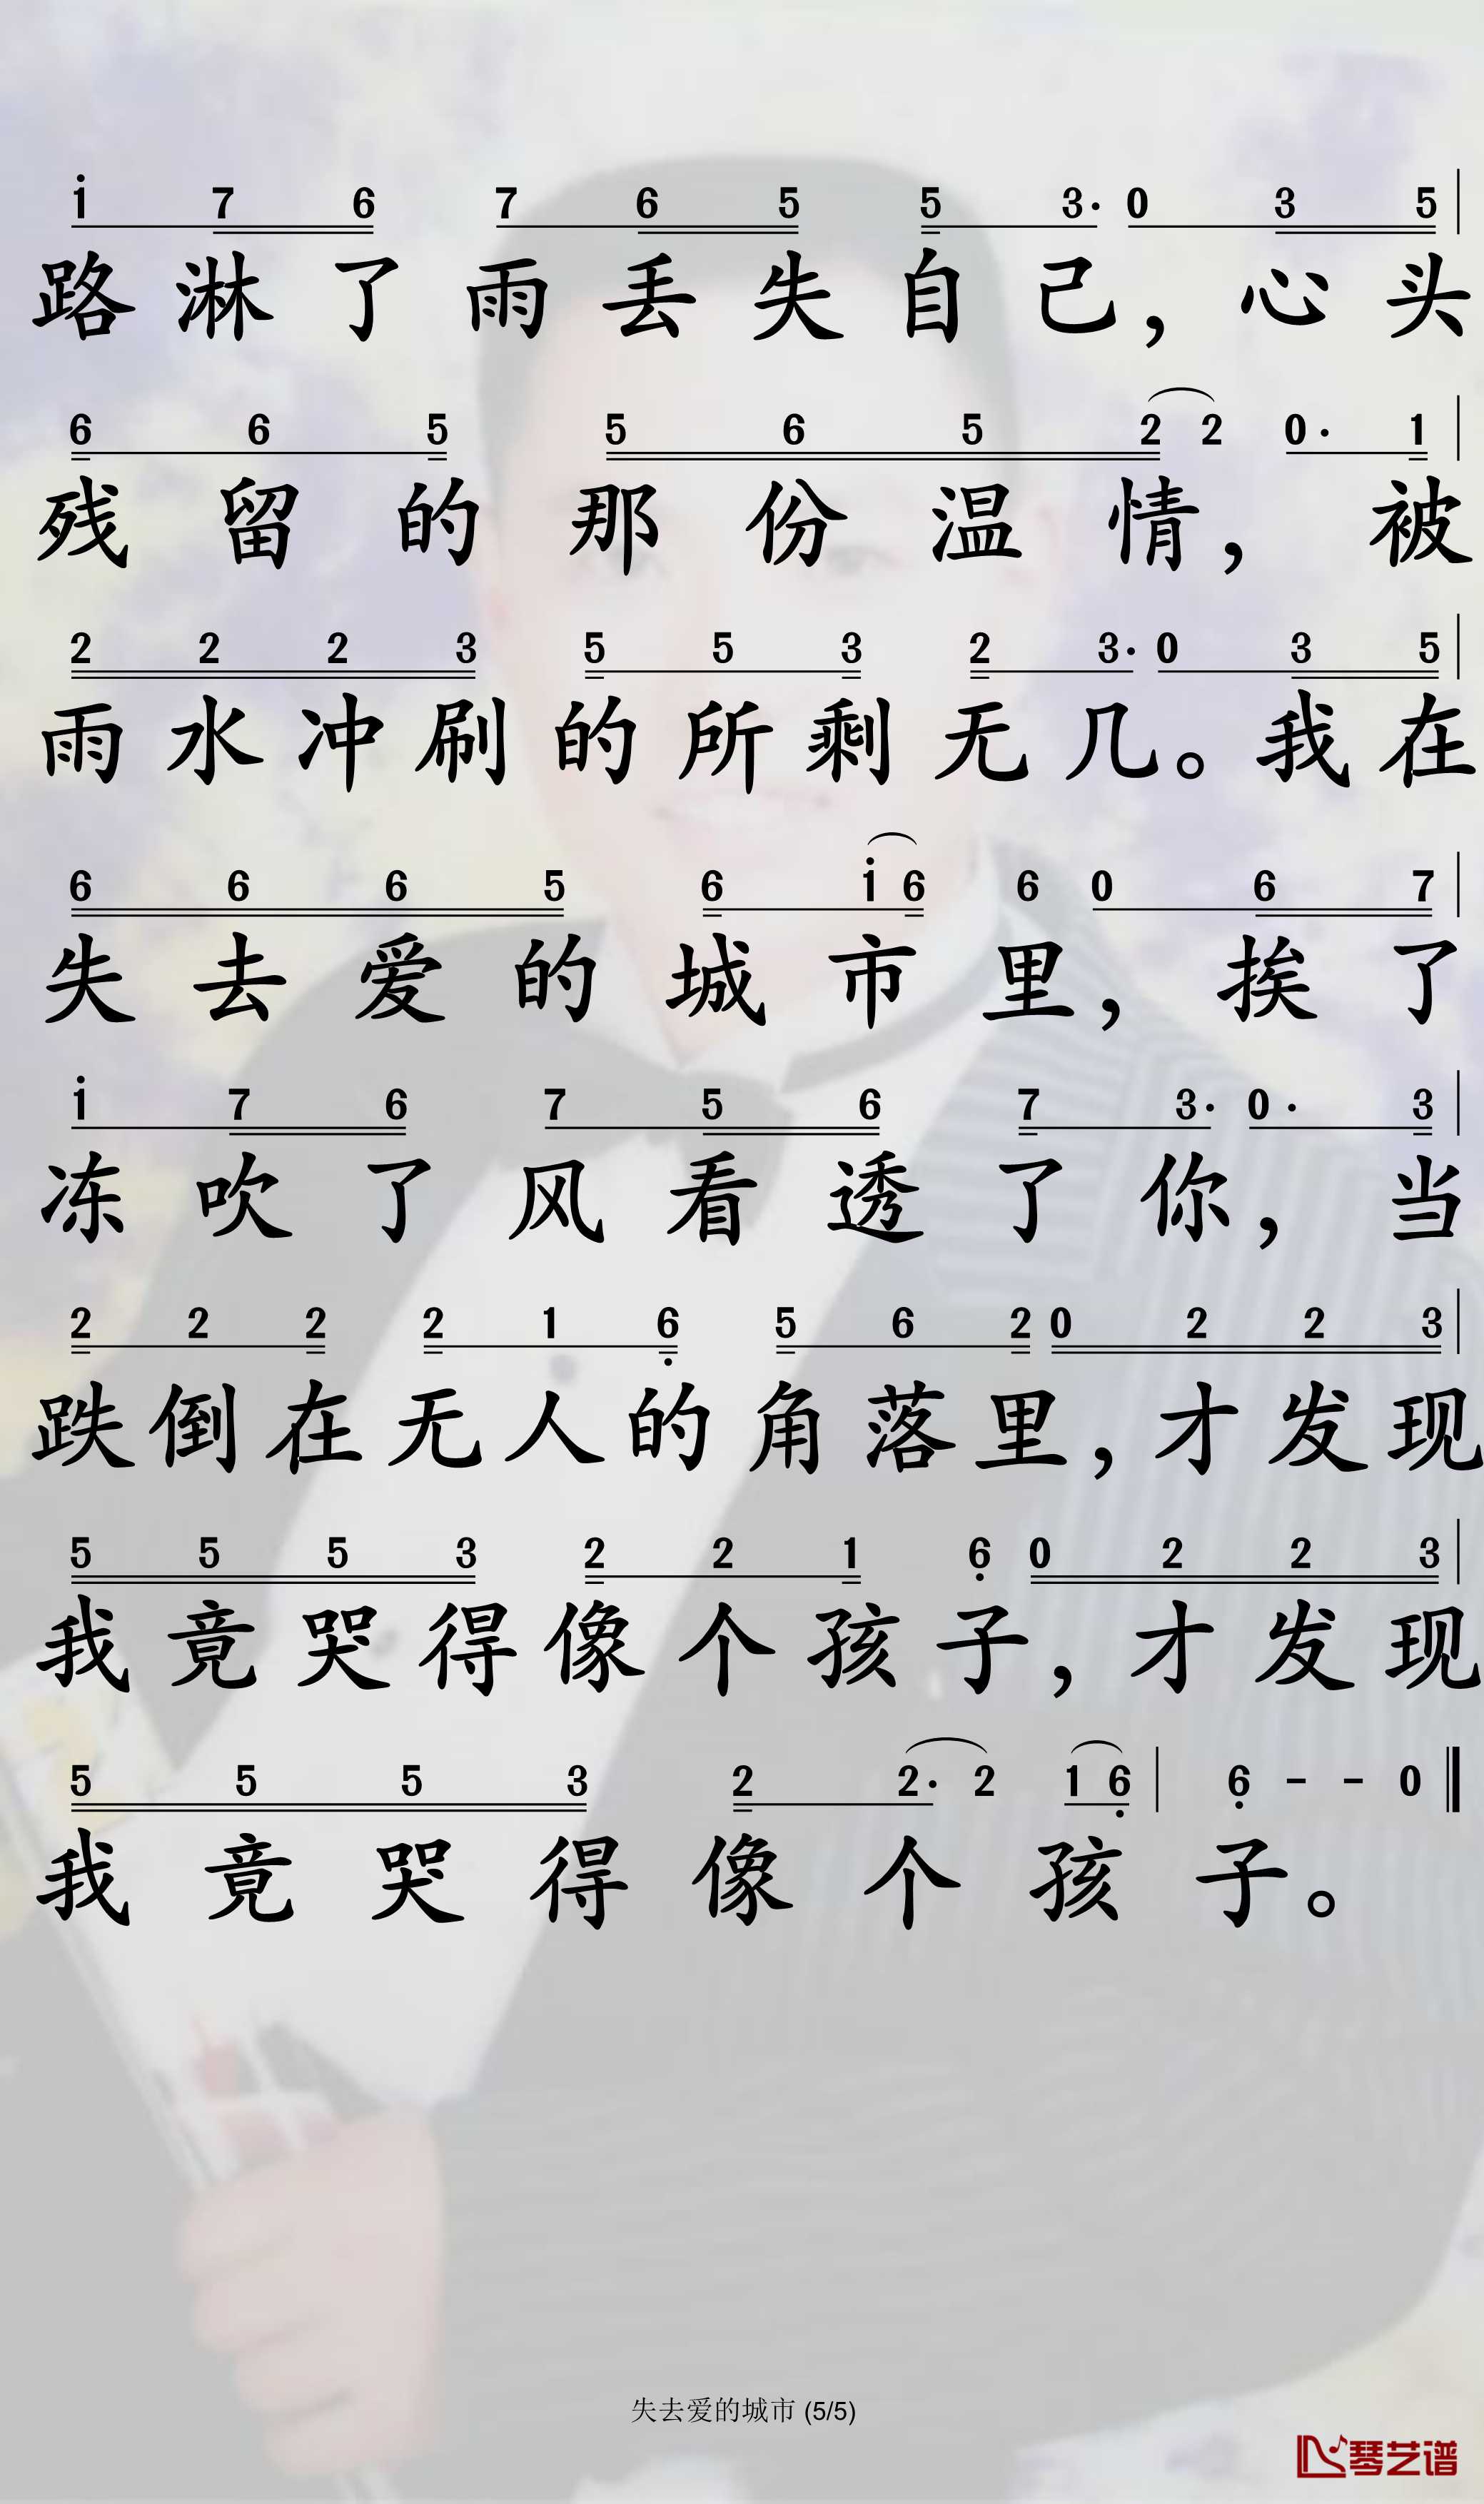 i 7 6 7 6 5 5 3· 0 3 5 |
路淋了雨丢失自己，心头
6 6 5 5 6 5 2 2 0· 1 |
残留的那份温情，被
2 2 2 3 5 5 3 2 3· 0 3 5 |
雨水冲刷的所剩无几。我在
6 6 6 5 6 i 6 6 0 6 7 |
失去爱的城市里，挨了
i 7 6 7 5 6 7 3· 0· 3 |
冻吹了风看透了你，当
2 2 2 2 1 6̣ 5 6 2 0 2 2 3 |
跌倒在无人的角落里，才发现
5 5 5 3 2 2 1 6̣ 0 2 2 3 |
我竟哭得像个孩子，才发现
5 5 5 3 2 2· 2 1 6̣ | 6̣ - - 0 ‖
我竟哭得像个孩子。
失去爱的城市 (5/5)
琴艺谱